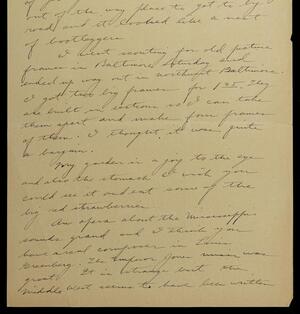 out of the way place to get to by
road and it looked like a nest
of bootleggers.
I went scouting for old picture
frames in Baltimore Saturday and
ended up way out in northwest Baltimore.
I got two big frames for They
are built in sections so I can take
them apart and make four frames
of them. I thought it was quite
a bargain.
My garden is a joy to the eye
and also the stomach. I wish you
could see it and eat some of the
big red strawberries.
An opera about the Mississippi
sounds grand and I think you
have a real composer in Louis
Gruenberg. The Emperor Jones music was
great. It is strange but the
middle west seems to have been written